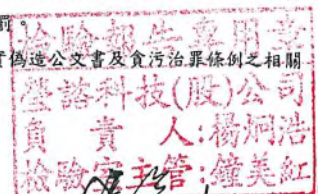 實偽造公文書及貪污治罪條例之相關
檢驗報告專用章
瑩諮科技(股)公司
負責人:楊炯浩
檢驗室主管:鐘美紅